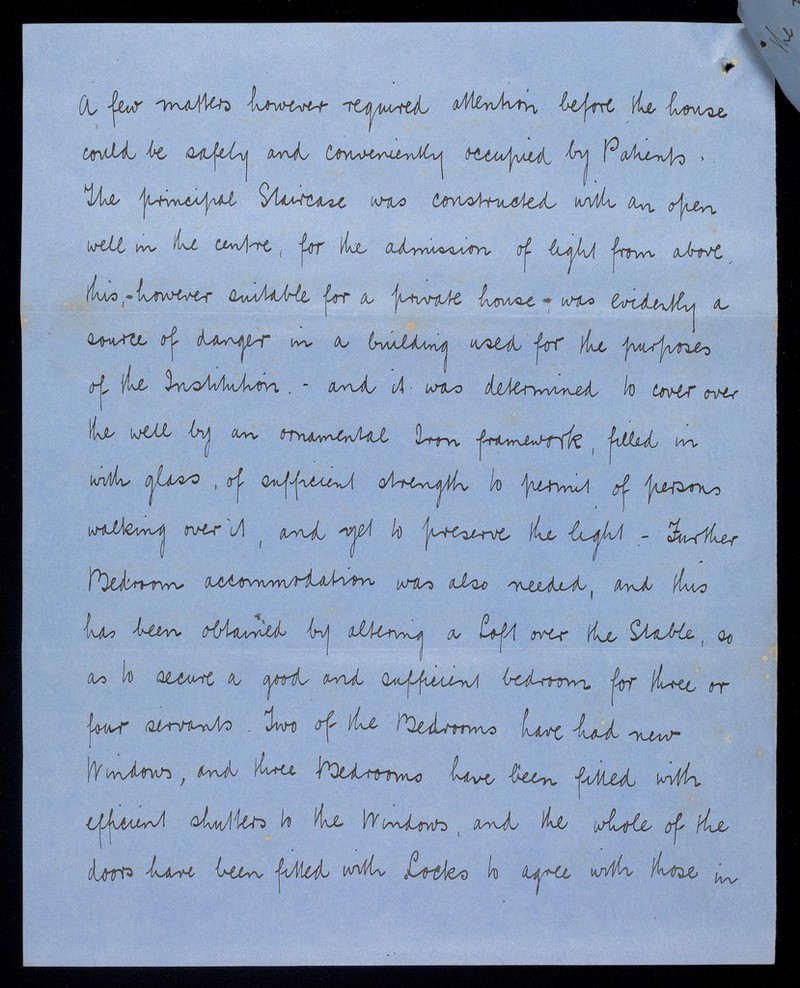 the
A few matters however required attention before the house
could be safely and conveniently occupied by Patients.
The principal Staircase was constructed with an open
well in the centre, for the admission of light from above,
this,-however suitable for a private house - was evidently a
source of danger in a building used for the purposes
of the Institution. - and it was determined to cover over
the well by an ornamental Iron framework, filled in
with glass, of sufficient strength to permit of persons
walking over it, and yet to preserve the light - Further
Bedroom accommodation was also needed, and this
has been obtained by altering a Loft over the Stable, so
as to secure a good and sufficient bedroom for three or
four servants. Two of the Bedrooms have had new
Windows, and three Bedrooms have been fitted with
efficient shutters to the Windows, and the whole of the
doors have been fitted with Locks to agree with those in